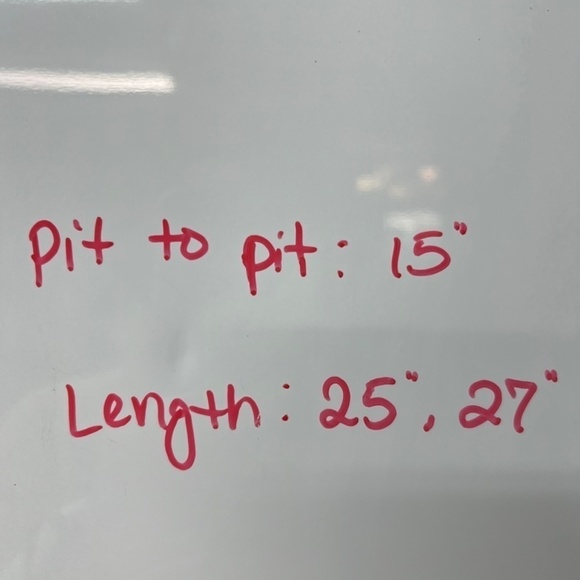 Pit to pit: 15"
Length: 25", 27"